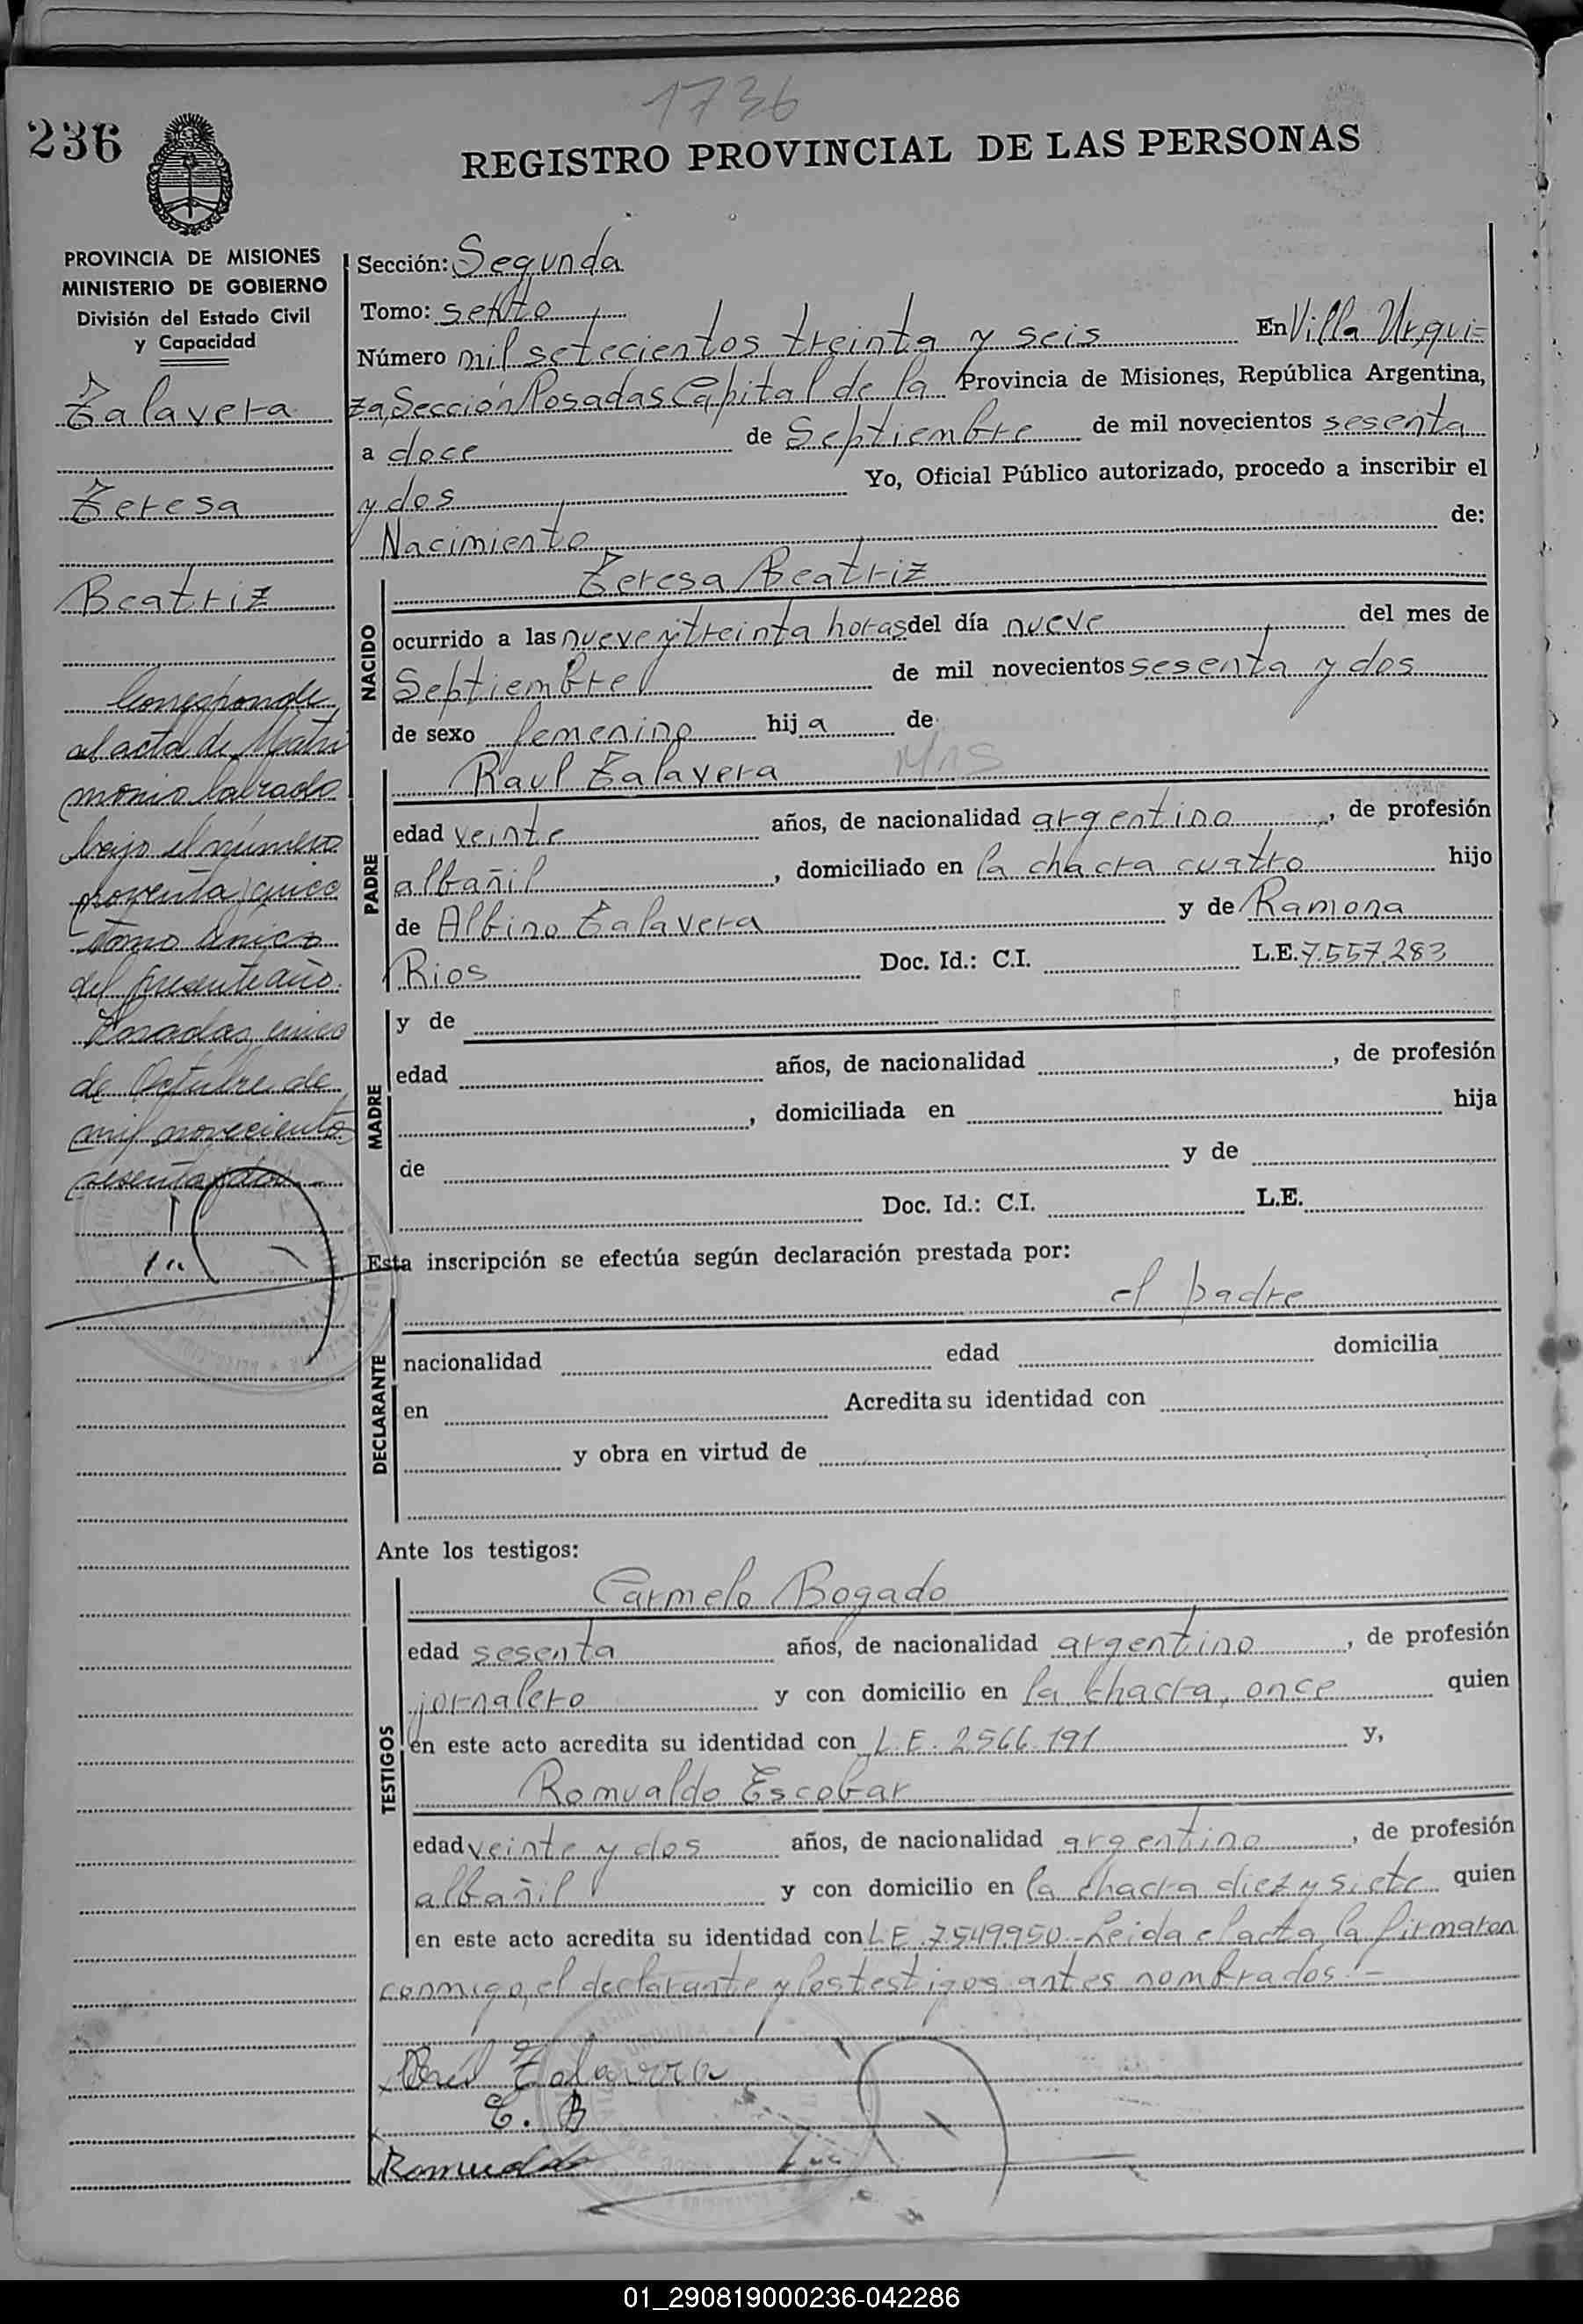 1736
236
REGISTRO PROVINCIAL DE LAS PERSONAS
PROVINCIA DE MISIONES
MINISTERIO DE GOBIERNO
División del Estado Civil
y Capacidad
Zalavera
Teresa
Beatriz
Corresponde
al acta de Matri
monio labrado
bajo el número
noventa y cinco
tomo único
del presente año.
Posadas, cinco
de Octubre de
mil novecientos
sesenta y dos.-
Sección: Segunda
Tomo: sexto
Número mil setecientos treinta y seis En Villa Urqui=
za, Sección Posadas Capital de la Provincia de Misiones, República Argentina,
a doce de Septiembre de mil novecientos sesenta
y dos Yo, Oficial Público autorizado, procedo a inscribir el
Nacimiento de:
NACIDO
Teresa Beatriz
ocurrido a las nueve y treinta horas del día nueve del mes de
Septiembre de mil novecientos sesenta y dos
de sexo femenino hija de
PADRE
Raul Zalavera
edad veinte años, de nacionalidad argentino, de profesión
albañil, domiciliado en la chacra cuatro hijo
de Albino Zalavera y de Ramona
Rios Doc. Id.: C.I. L.E. 7.557.283
MADRE
y de
edad años, de nacionalidad , de profesión
, domiciliada en hija
de y de
Doc. Id.: C.I. L.E.
Esta inscripción se efectúa según declaración prestada por:
el padre
DECLARANTE
nacionalidad edad domicilia
en Acredita su identidad con
y obra en virtud de
Ante los testigos:
TESTIGOS
Carmelo Bogado
edad sesenta años, de nacionalidad argentino, de profesión
jornalero y con domicilio en la chacra, once quien
en este acto acredita su identidad con L.E. 2.566.191 y,
Romualdo Escobar
edad veinte y dos años, de nacionalidad argentino, de profesión
albañil y con domicilio en la chacra diez y siete quien
en este acto acredita su identidad con L.E. 7549.950 - Leida el acta, la firmaron
conmigo, el declarante y los testigos antes nombrados.-
Zalavera
C. B
Romualdo
01_290819000236-042286